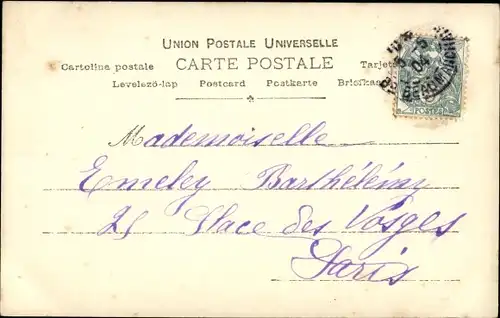 UNION POSTALE UNIVERSELLE
CARTE POSTALE
Cartolina postale Tarjeta
Levelezö-lap Postcard Postkarte Briefkaa
POSTES
04
Mademoiselle
Emeley Barthélémy
Place des Vosges
Paris